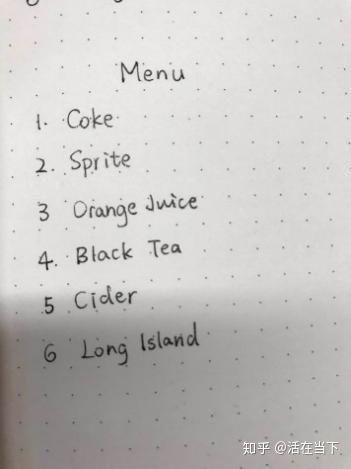 Menu
1. Coke
2. Sprite
3 Orange Juice
4. Black Tea
5 Cider
6 Long Island
知乎 @活在当下